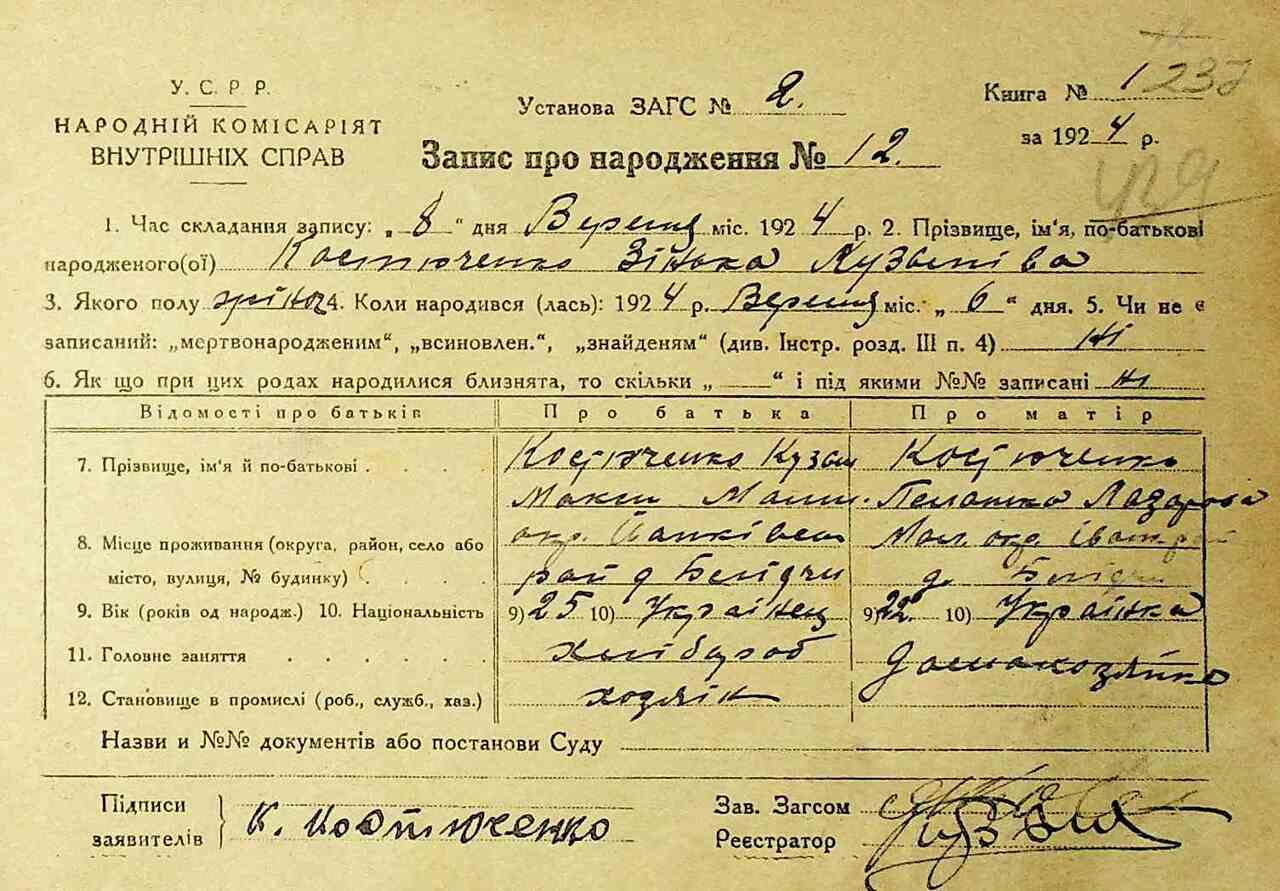 У. С. Р. Р.
НАРОДНІЙ КОМІСАРІЯТ
ВНУТРІШНІХ СПРАВ
Установа ЗАГС № 2.
Книга № 1
237
за 1924 р.
Запис про народження № 12.
1. Час складання запису: „8“ дня Вересня міс. 1924 р. 2. Прізвище, ім'я, по-батькові
народженого(ої) Костюченко Зінька Кузьміва
3. Якого полу жіноч 4. Коли народився (лась): 1924 р. Вересня міс. „6“ дня. 5. Чи не є
записаний: „мертвонародженим“, „всиновлен.“, „знайденям“ (див. Інстр. розд. III п. 4) ні
6. Як що при цих родах народилися близнята, то скільки „ “ і під якими №№ записані ні
Відомості про батьків Про батька Про матір
7. Прізвище, ім'я й по-батькові Костюченко Кузьм Костюченко
Макси Лазарова
8. Місце проживання (округа, район, село або окр.
місто, вулиця, № будинку) рай д д
9. Вік (років од народж.) 10. Національність 9) 25 10) Українец 9) 22. 10) Українка
11. Головне заняття хлібороб домахозяйка
12. Становище в промислі (роб., служб., хаз.) хозяік
Назви и №№ документів або постанови Суду
Підписи
заявителів К. Костюченко
Зав. Загсом
Реєстратор